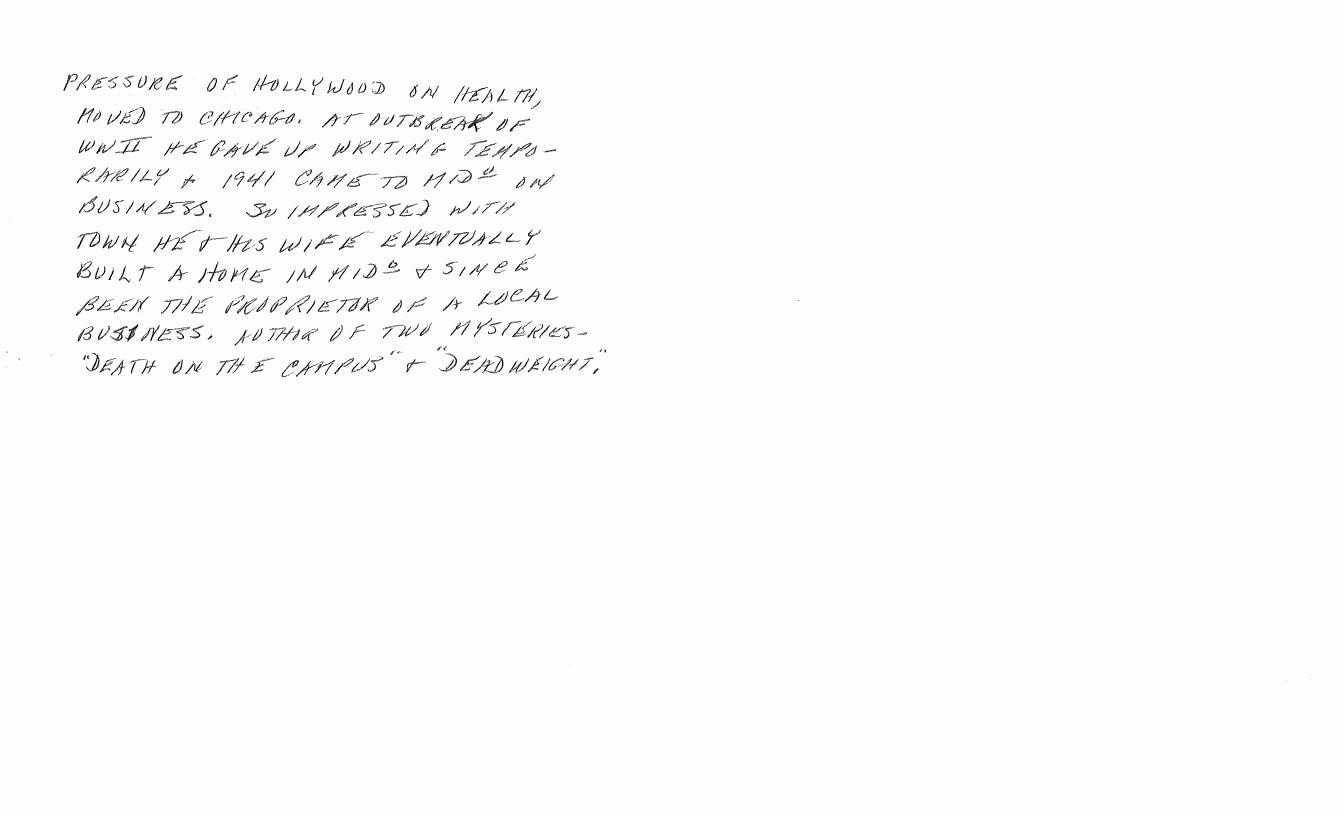 PRESSURE OF HOLLYWOOD ON HEALTH,
MOVED TO CHICAGO. AT OUTBREAK OF
WWII HE GAVE UP WRITING TEMPO-
RARILY + 1941 CAME TO MIDᴰ ON
BUSINESS. SO IMPRESSED WITH
TOWN HE + HIS WIFE EVENTUALLY
BUILT A HOME IN MIDᴰ + SINCE
BEEN THE PROPRIETOR OF A LOCAL
BUSINESS. AUTHOR OF TWO MYSTERIES-
"DEATH ON THE CAMPUS" + "DEADWEIGHT."